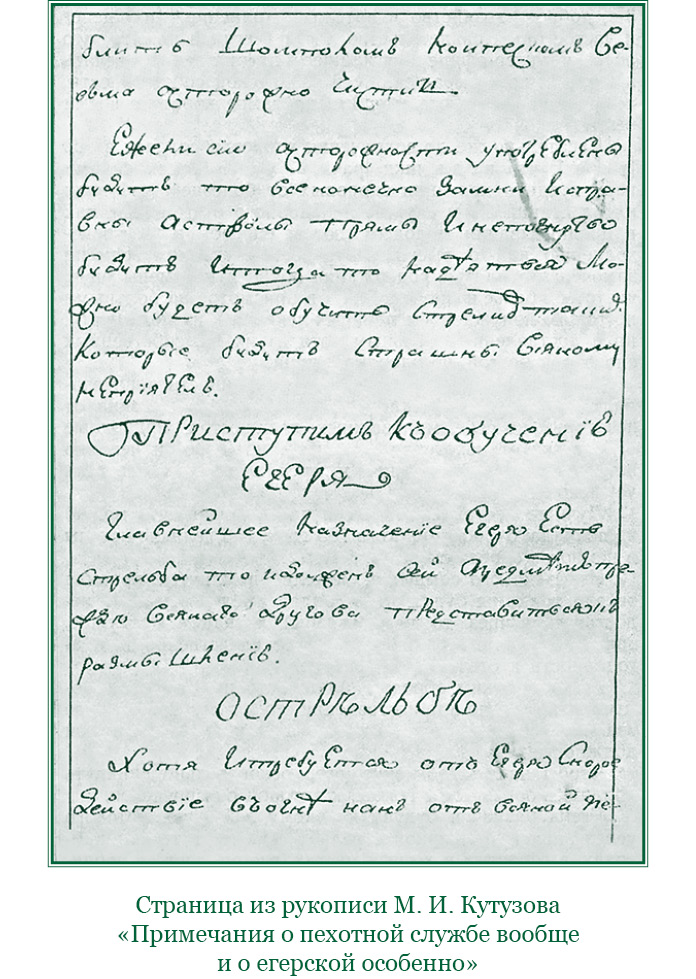 блить Шомполомъ которомъ Ве-
сьма осторожно чистить.
Ежели сии осторожности употреблены
будутъ то всеконечно замки испра-
вны а стволы прямы и непогнуты
будутъ и тогда то надѣяться мо-
жно будетъ обучить
которые будутъ страшны всякому
неприятелю.
Приступимъ къ обученiю
егеря
Главнейшее назначенiе Егеря Есть
стрельба то и долженъ сей предметъ пре-
жде всякаго другова представиться въ
размышленiе.
О стрѣльбѣ
Хотя и требуется отъ Егеря скорое
действiе въ огнѣ какъ отъ всякой пе-
Страница из рукописи М. И. Кутузова
«Примечания о пехотной службе вообще
и о егерской особенно»